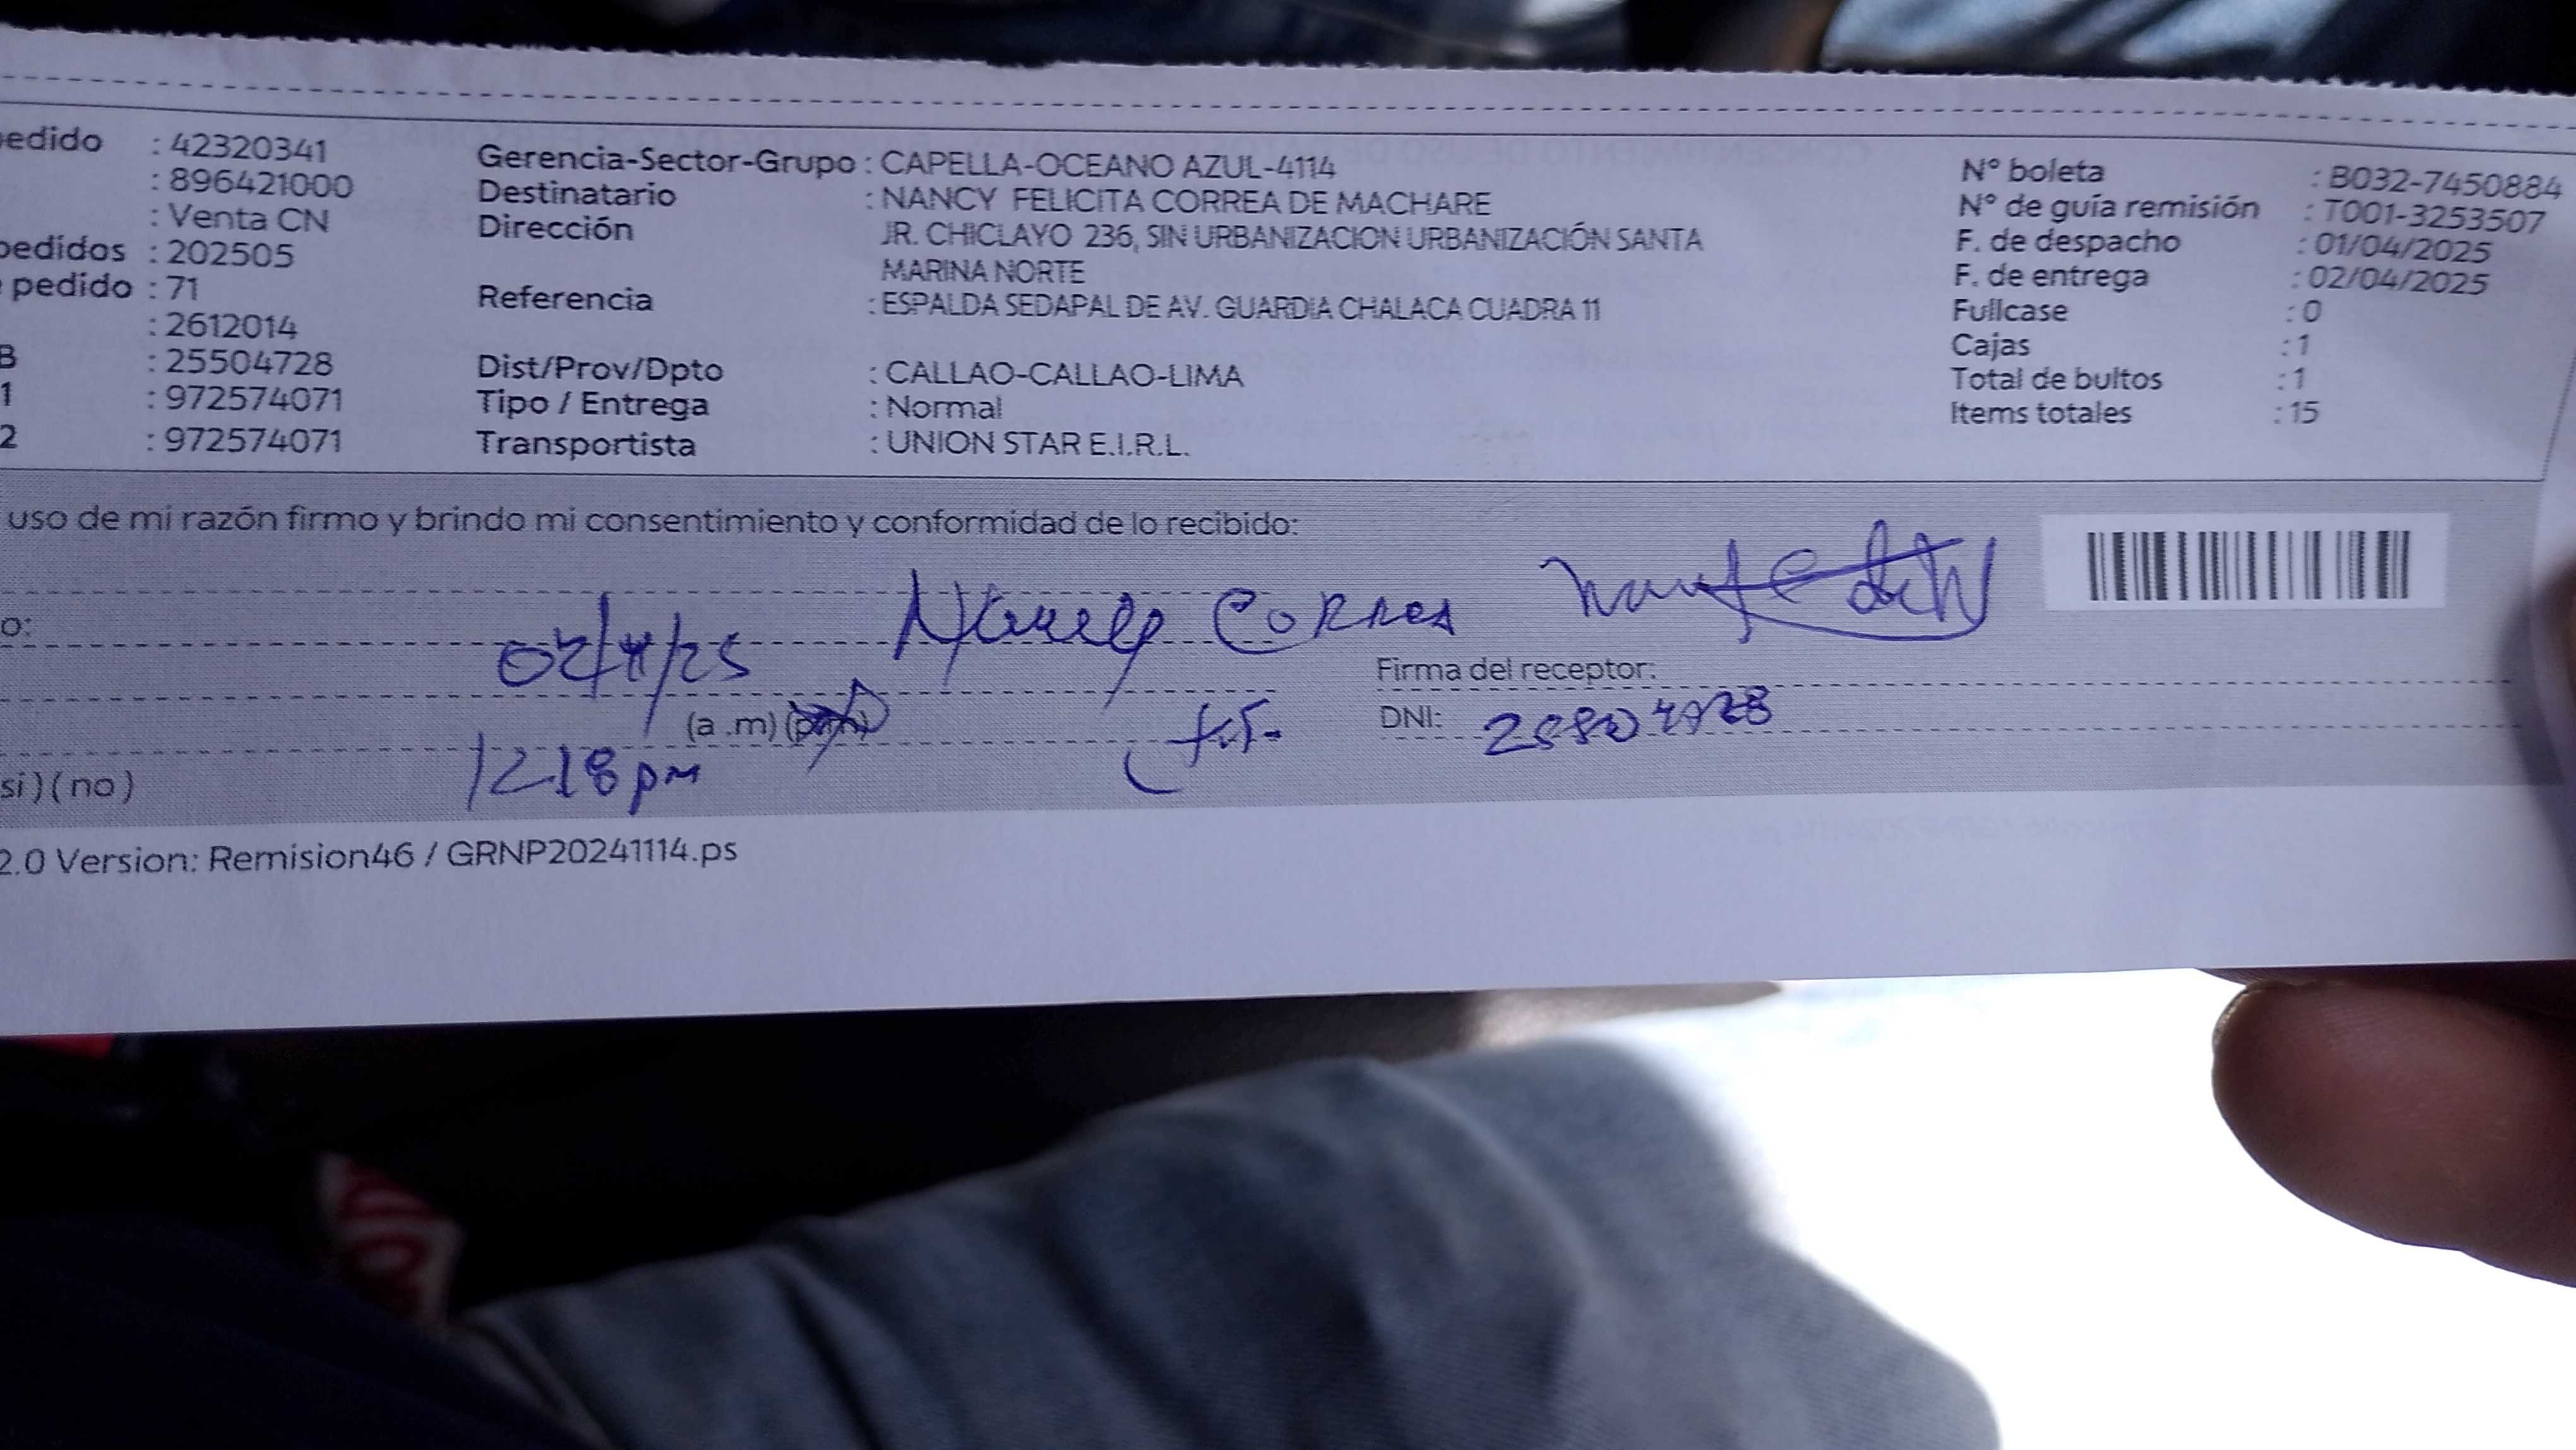 edido : 42320341
: 896421000
: Venta CN
pedidos : 202505
pedido : 71
: 2612014
B : 25504728
1 : 972574071
2 : 972574071
Gerencia-Sector-Grupo : CAPELLA-OCEANO AZUL-4114
Destinatario : NANCY FELICITA CORREA DE MACHARE
Dirección JR. CHICLAYO 236, SIN URBANIZACION URBANIZACIÓN SANTA
MARINA NORTE
Referencia : ESPALDA SEDAPAL DE AV. GUARDIA CHALACA CUADRA 11
Dist/Prov/Dpto : CALLAO-CALLAO-LIMA
Tipo / Entrega : Normal
Transportista : UNION STAR E.I.R.L.
N° boleta : B032-7450884
N° de guía remisión : T001-3253507
F. de despacho : 01/04/2025
F. de entrega : 02/04/2025
Fullcase : 0
Cajas : 1
Total de bultos : 1
Items totales : 15
uso de mi razón firmo y brindo mi consentimiento y conformidad de lo recibido:
o:
Correa
Firma del receptor:
(a .m)
DNI:
1218 pm
si ) ( no )
2.0 Version: Remision46 / GRNP20241114.ps